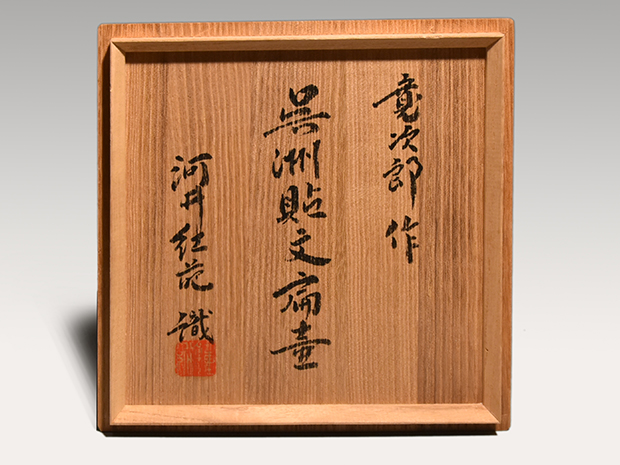 寛次郎作
呉洲貼文扁壷
河井紅葩識